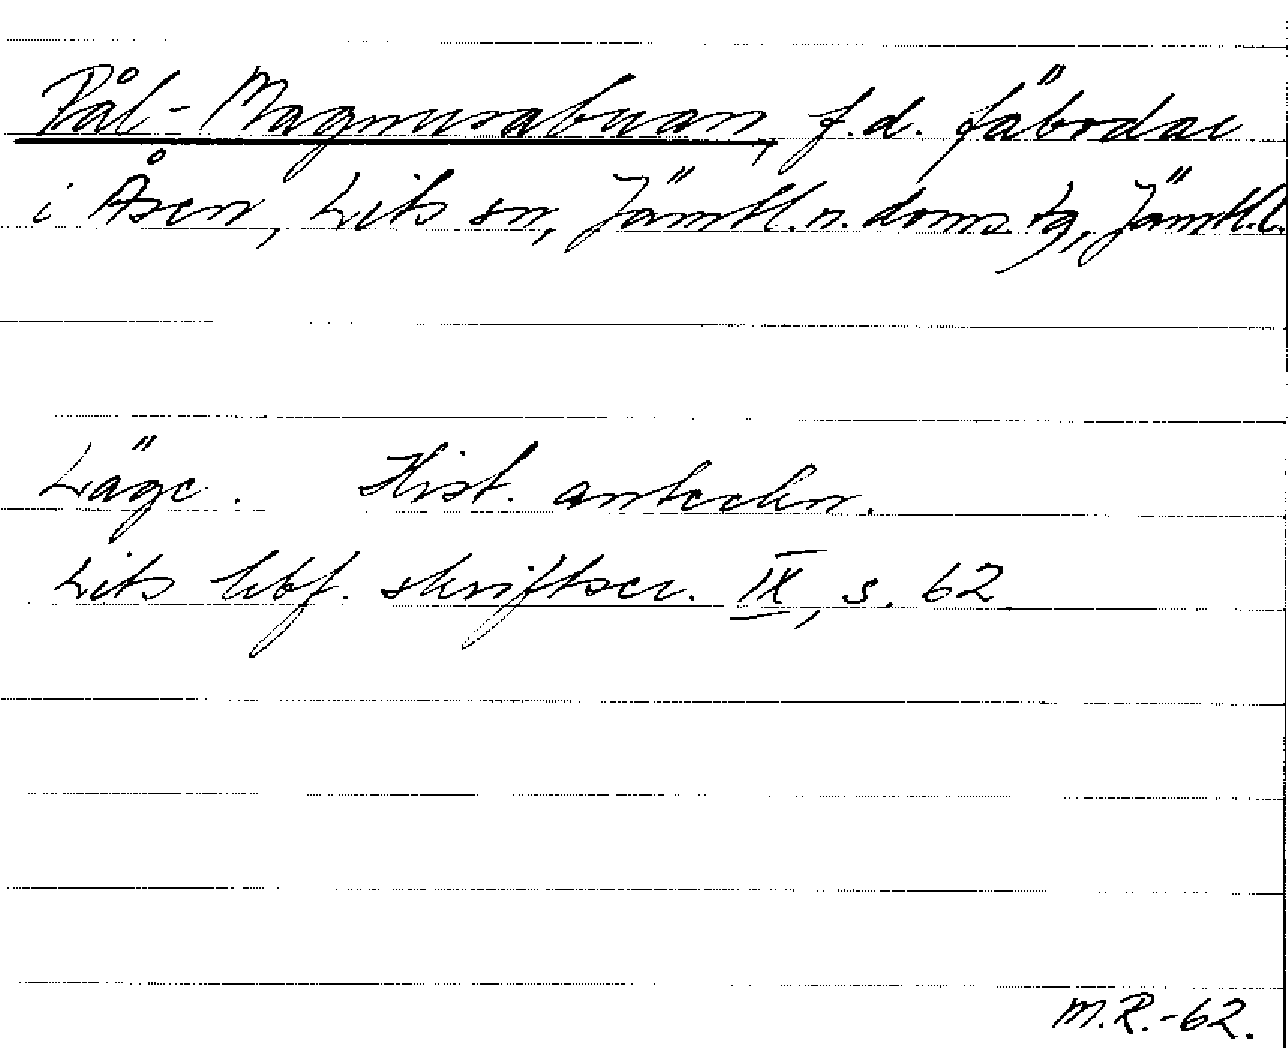 Pål-Magnusabuan, f.d. fäbodar
i Åsen, Lits sn, Jämtl.n. doms.tg, Jämtl.l.
Läge. Hist. anteckn.
Lits hbf. skriftser. IX, s. 62
M.R.-62.